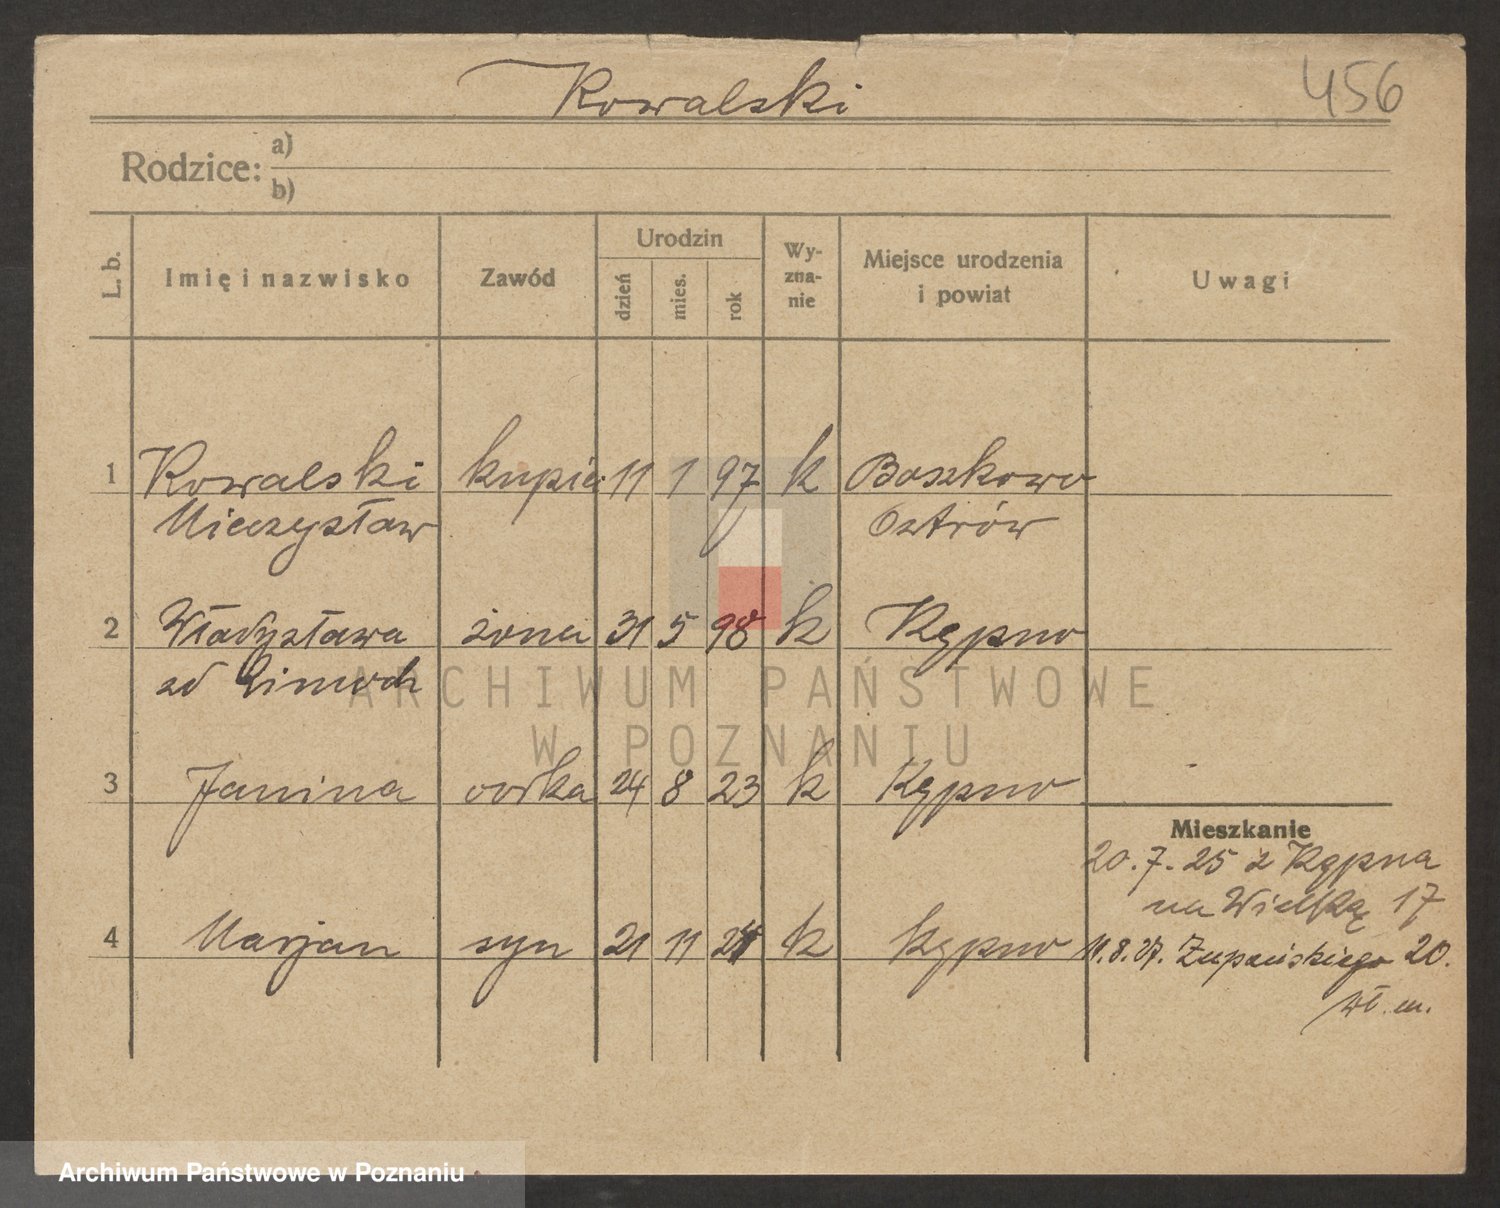 Kowalski 456
Rodzice: a)
b)
L. b. Imię i nazwisko Zawód Urodzin dzień mies. rok Wy-zna-nie Miejsce urodzenia i powiat Uwagi
1 Kowalski kupiec 11 1 97 k Boszkowo
Mieczysław Ostrów
2 Władysława żona 31 5 98 k Kępno
zd
ARCHIWUM PAŃSTWOWE
W POZNANIU
3 Janina córka 24 8 23 k Kępno
Mieszkanie
20.7.25 z Kępna
na Wielką 17
4 Marjan syn 21 11 24 k Kępno
11.8.37. Żupańskiego 20.
wł. m.
Archiwum Państwowe w Poznaniu